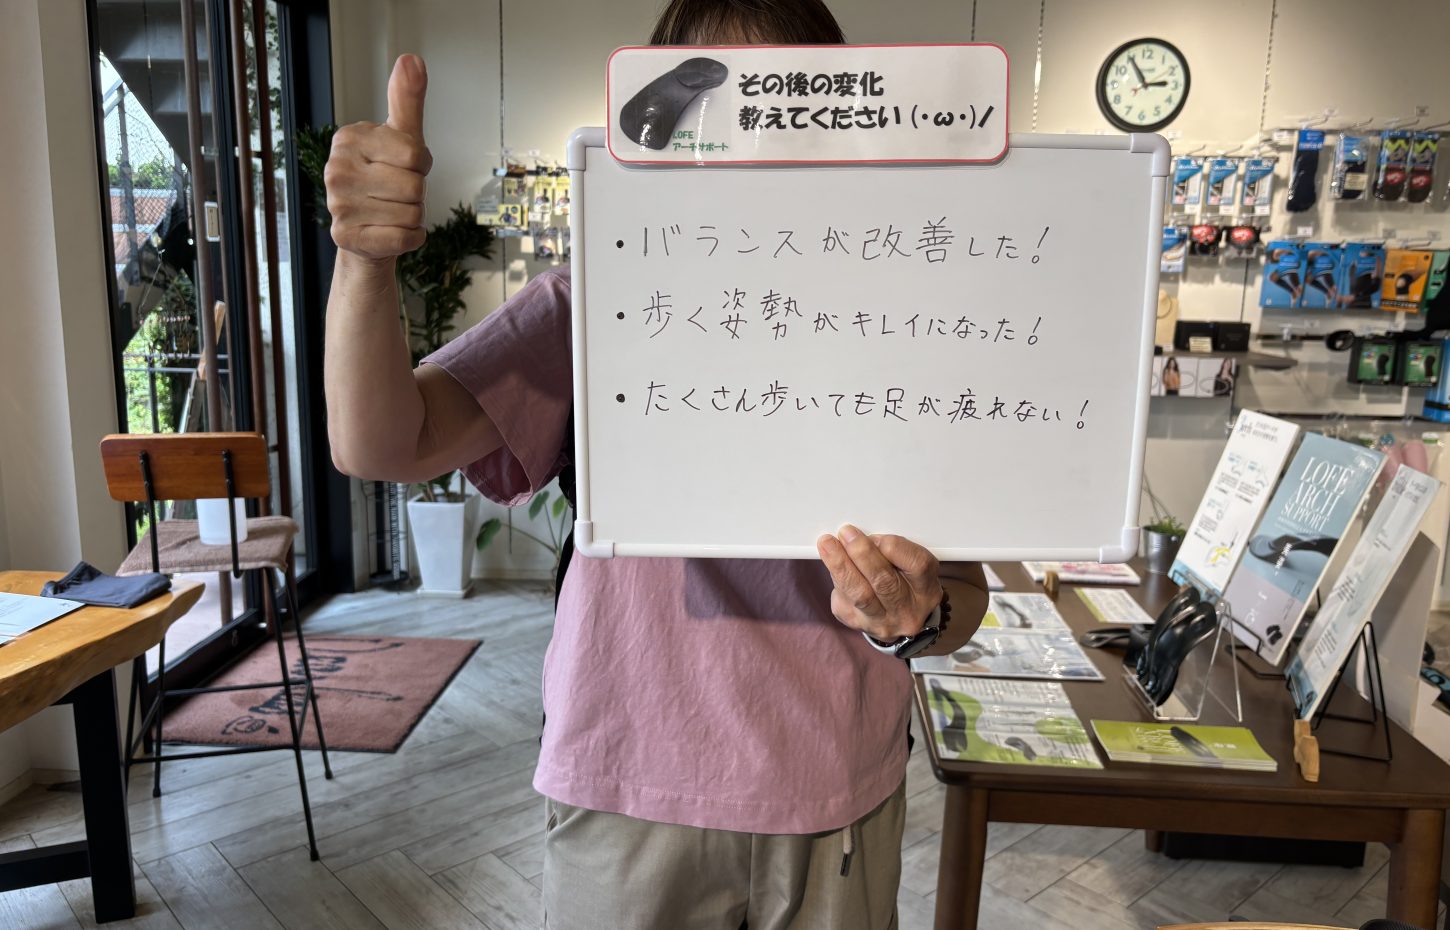 その後の変化
教えてください (・ω・)/
LOFE
アーチサポート
・バランスが改善した！
・歩く姿勢がキレイになった！
・たくさん歩いても足が疲れない！
LOFE
ARCH
SUPPORT